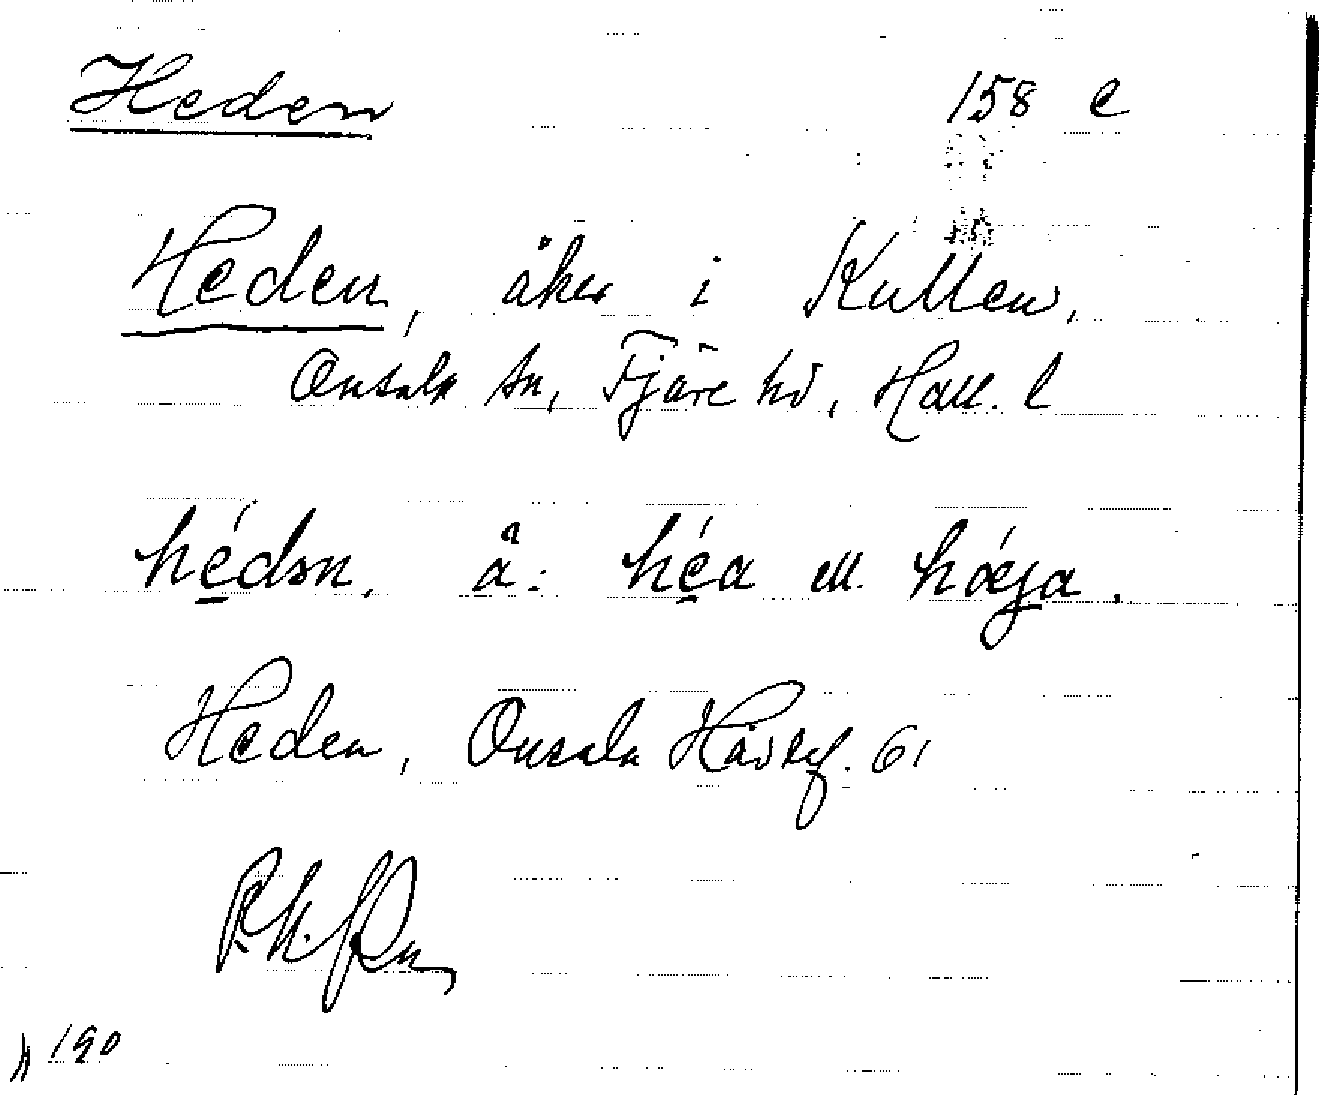 Heden 158 c
Heden, åker i Kullen,
Onsala sn, Fjäre hd, Hall. l
hédən. å: héa ell. hǿja.
Heden, Onsala Hdskf. 61
190